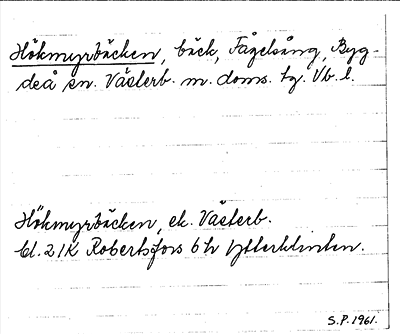 Hökmyrbäcken, bäck, Fågelsång, Byg-
deå sn. Västerb. m. doms. tg. Vb. l.
Hökmyrbäcken, ek. Västerb.
bl. 21K Robertsfors 6 h Ytterklinten.
S.P. 1961.